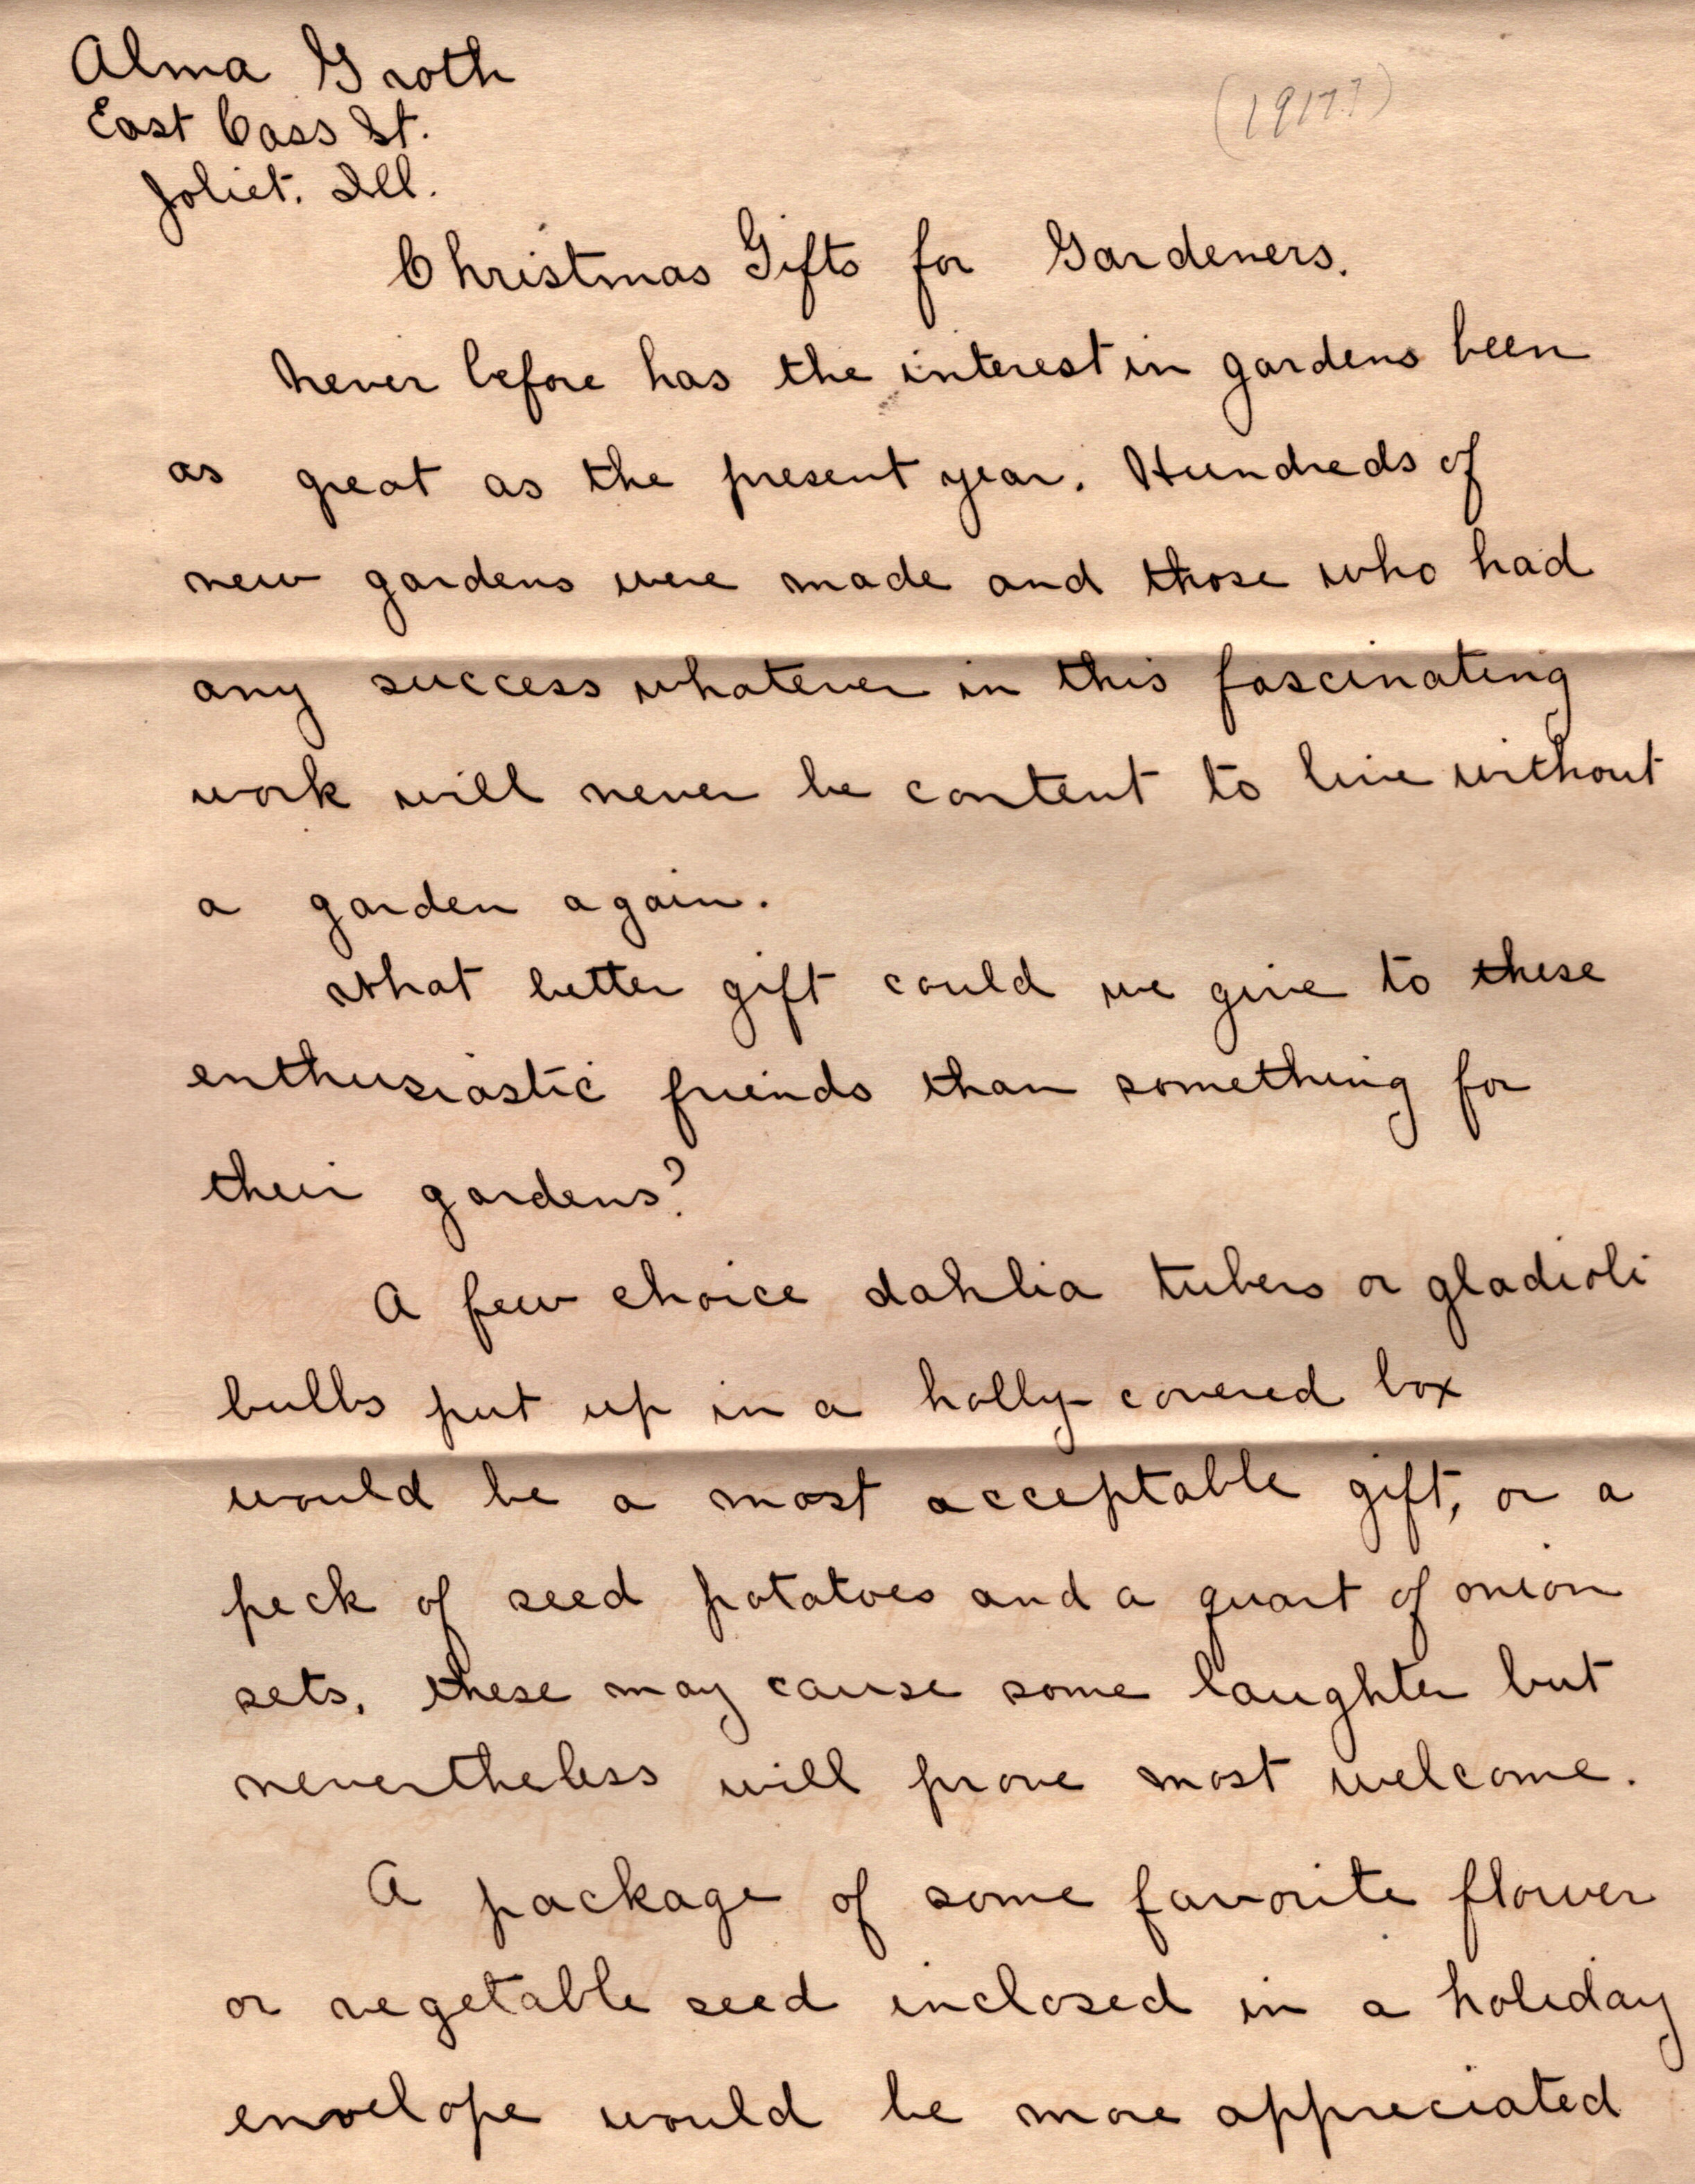 Alma Groth
East Cass St.
Joliet. Ill.
(1917?)
Christmas Gifts for Gardeners.
Never before has the interest in gardens been
as great as the present year. Hundreds of
new gardens were made and those who had
any success whatever in this fascinating
work will never be content to live without
a garden again.
What better gift could we give to these
enthusiastic friends than something for
their gardens?
A few choice dahlia tubers or gladioli
bulbs put up in a holly-covered box
would be a most acceptable gift, or a
peck of seed potatoes and a quart of onion
sets, these may cause some laughter but
nevertheless will prove most welcome.
A package of some favorite flower
or vegetable seed inclosed in a holiday
envelope would be more appreciated